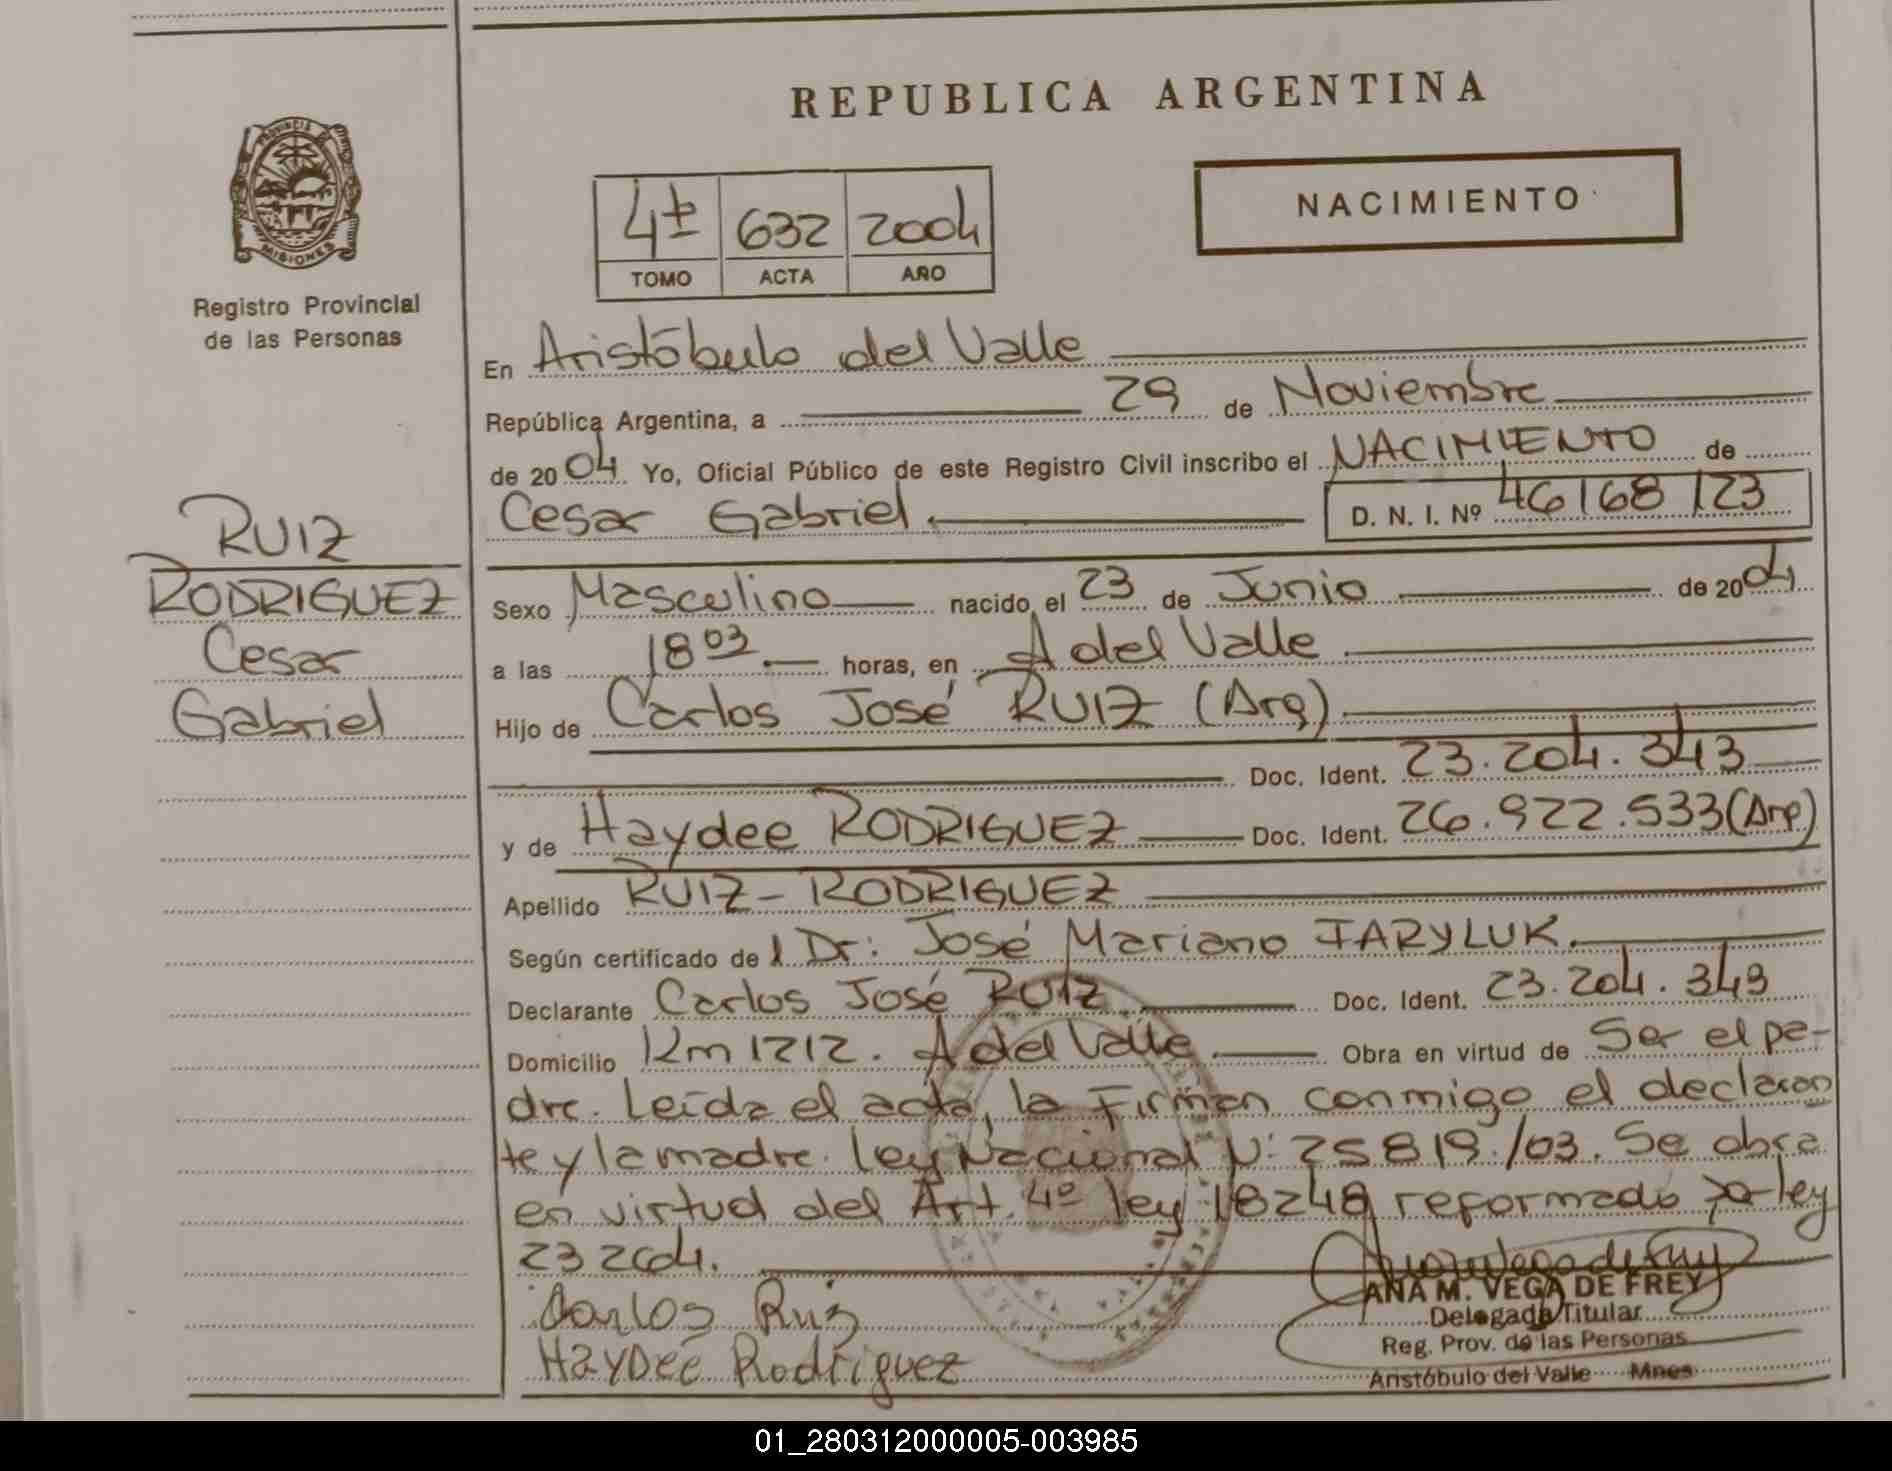 REPUBLICA ARGENTINA
PROVINCIA DE
MISIONES
Registro Provincial
de las Personas
4±
632
2004
TOMO
ACTA
AÑO
NACIMIENTO
En Aristóbulo del Valle
República Argentina, a 29 de Noviembre
de 2004 Yo, Oficial Público de este Registro Civil inscribo el NACIMIENTO de
Cesar Gabriel D. N. I. Nº 46168123
RUIZ
RODRIGUEZ
Cesar
Gabriel
Sexo Masculino nacido el 23 de Junio de 2004
a las 18 03 horas, en A del Valle
Hijo de Carlos José RUIZ (Arg)
Doc. Ident. 23.204.343
y de Haydee RODRIGUEZ Doc. Ident. 26.922.533 (Arg)
Apellido RUIZ - RODRIGUEZ
Según certificado del Dr: José Mariano
Declarante Carlos José RUIZ Doc. Ident. 23.204.343
Domicilio Km 1212. A del Valle Obra en virtud de Ser el pa-
dre. Leída el acta, la Firman conmigo el declaran
te y la madre. Ley Nacional N: 25819/03. Se obra
en virtud del Art. 4º ley 18248 reformado por ley
23264.
Carlos Ruiz
Haydeé Rodríguez
ANA M. VEGA DE FREY
Delegada Titular
Reg. Prov. de las Personas
Aristóbulo del Valle Mnes
01_280312000005-003985